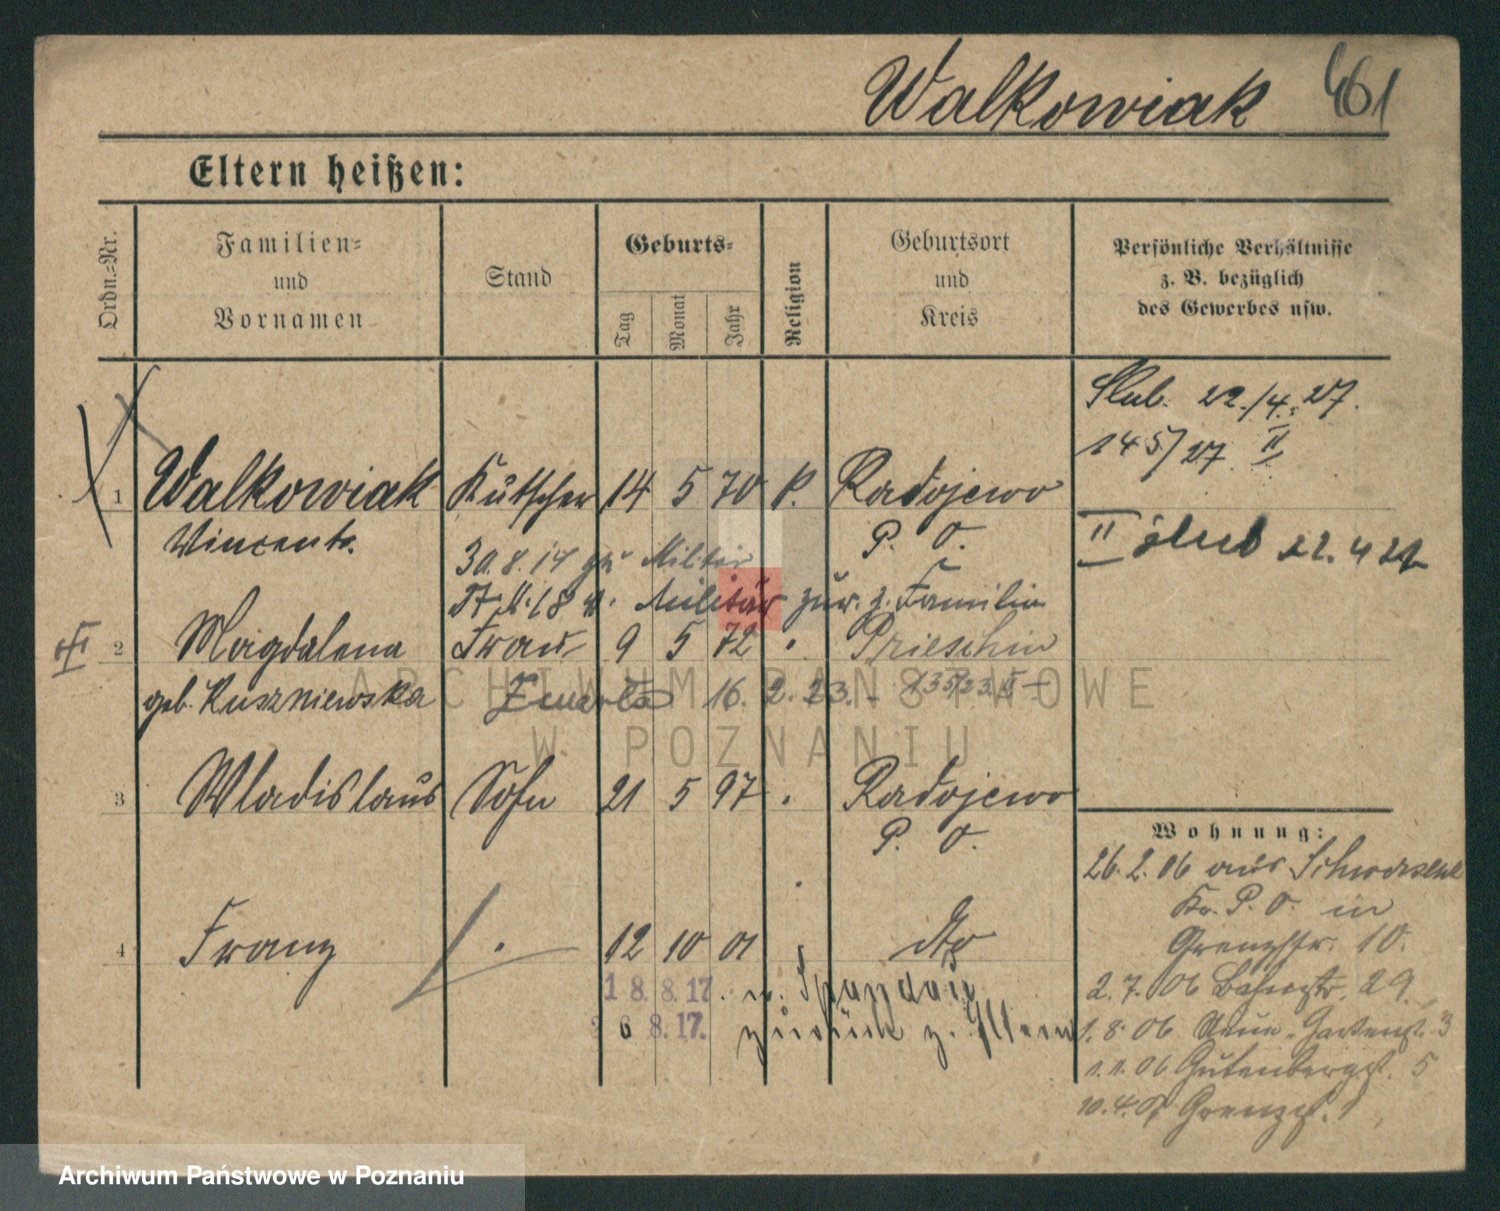 Walkowiak 461
Eltern heißen:
Ordn.-Nr.
Familien-
und
Vornamen
Stand
Geburts-
Tag
Monat
Jahr
Religion
Geburtsort
und
Kreis
Persönliche Verhältnisse
z. B. bezüglich
des Gewerbes usw.
22./4. 27.
145/27 II
1 Walkowiak Kutscher 14 5 70 k. Radojewo
Vincent P. O.
II ślub 22. 4 27
30.8.17 zu Militär
Militär zur. z. Familie
2 Magdalena Frau 9 5 72 " Prieschin
geb. Kuszniewska Zmarła 16. 2. 23. - 135/23 II
3 Wladislaus Sohn 21 5 97 " Radojewo
P. O.
4 Franz " 12 10 01 " dto
18. 8. 17. n. Spandau
26 8. 17. zurück z. Eltern
Wohnung:
26. 2. 06 aus Schwersenz
Kr. P. O. in
Grenzstr. 10.
2. 7. 06 29.
1. 8. 06 Neue Gartenst. 3
1. 1. 06 Gutenbergst. 5
10. 4. Grenzst. 1
ARCHIWUM PAŃSTWOWE
W POZNANIU
Archiwum Państwowe w Poznaniu